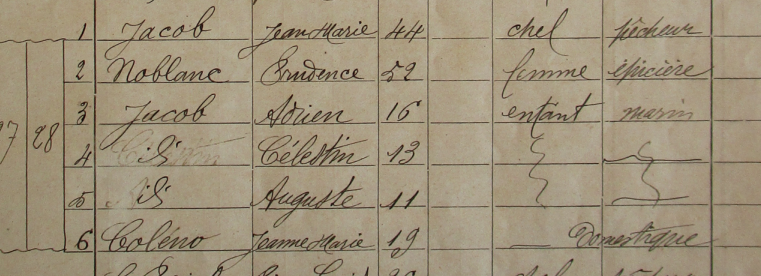 1 Jacob Jean Marie 44 chef pêcheur
2 Noblanc Prudence 52 femme épicière
3 Jacob Adrien 16 enfant marin
28
4 id Célestin 13
5 id Auguste 11
6 Coléno Jeanne Marie 19 Domestique